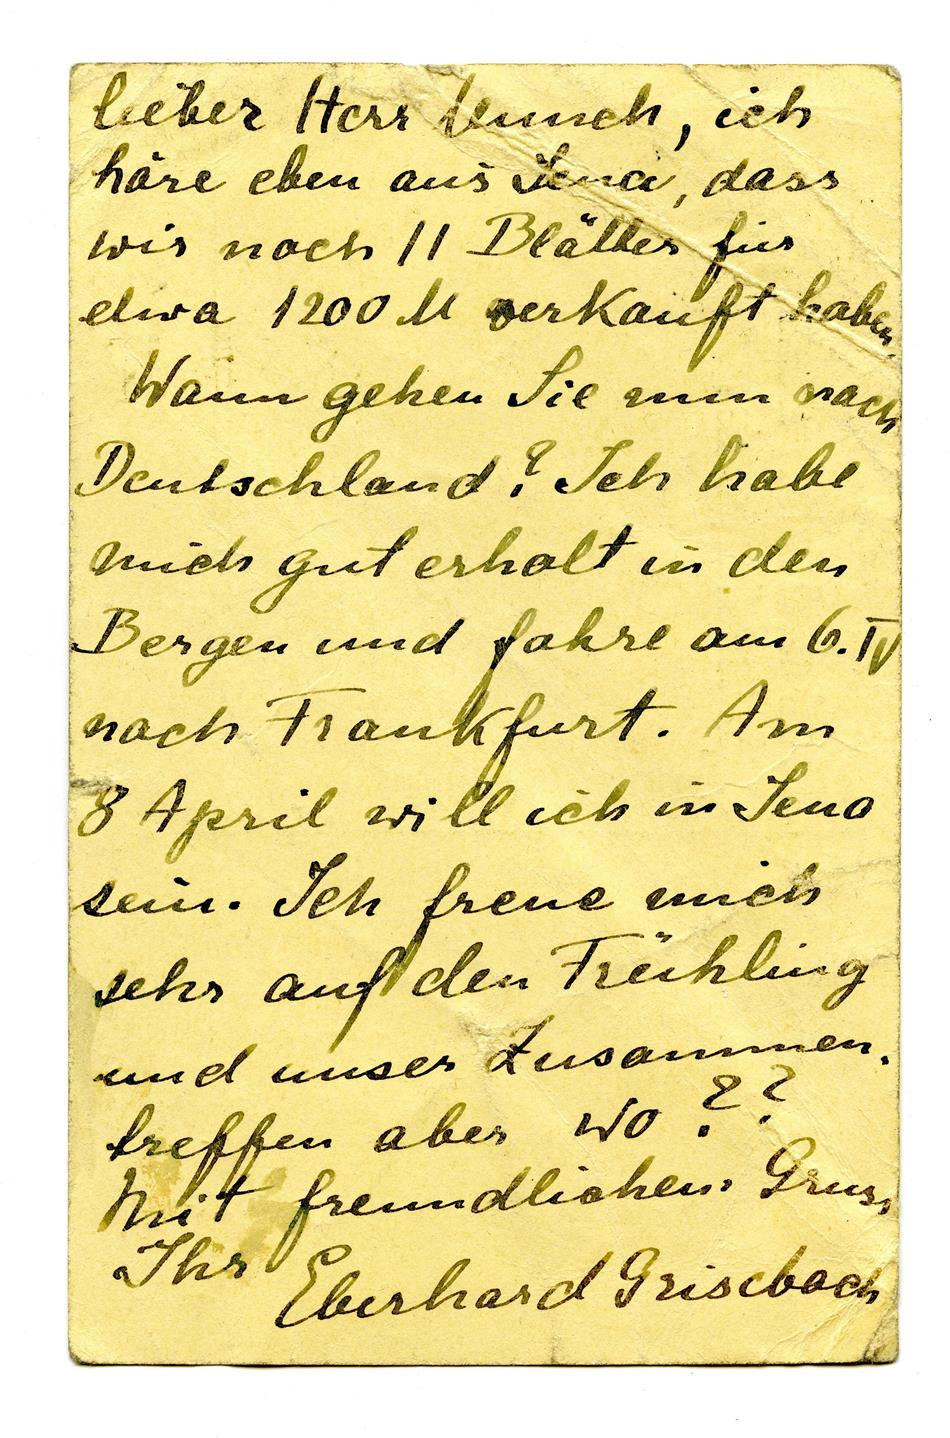 lieber Herr Munch, ich
höre eben aus Jena, dass
wir noch 11 Blätter für
etwa 1200 M verkauft haben.
Wann gehen Sie nun nach
Deutschland? Ich habe
mich gut erholt in den
Bergen und fahre am 6. IV
nach Frankfurt. Am
8 April will ich in Jena
sein. Ich freue mich
sehr auf den Frühling
und unser Zusammen-
treffen aber wo ??
Mit freundlichem Gruss
Ihr
Eberhard Grisebach